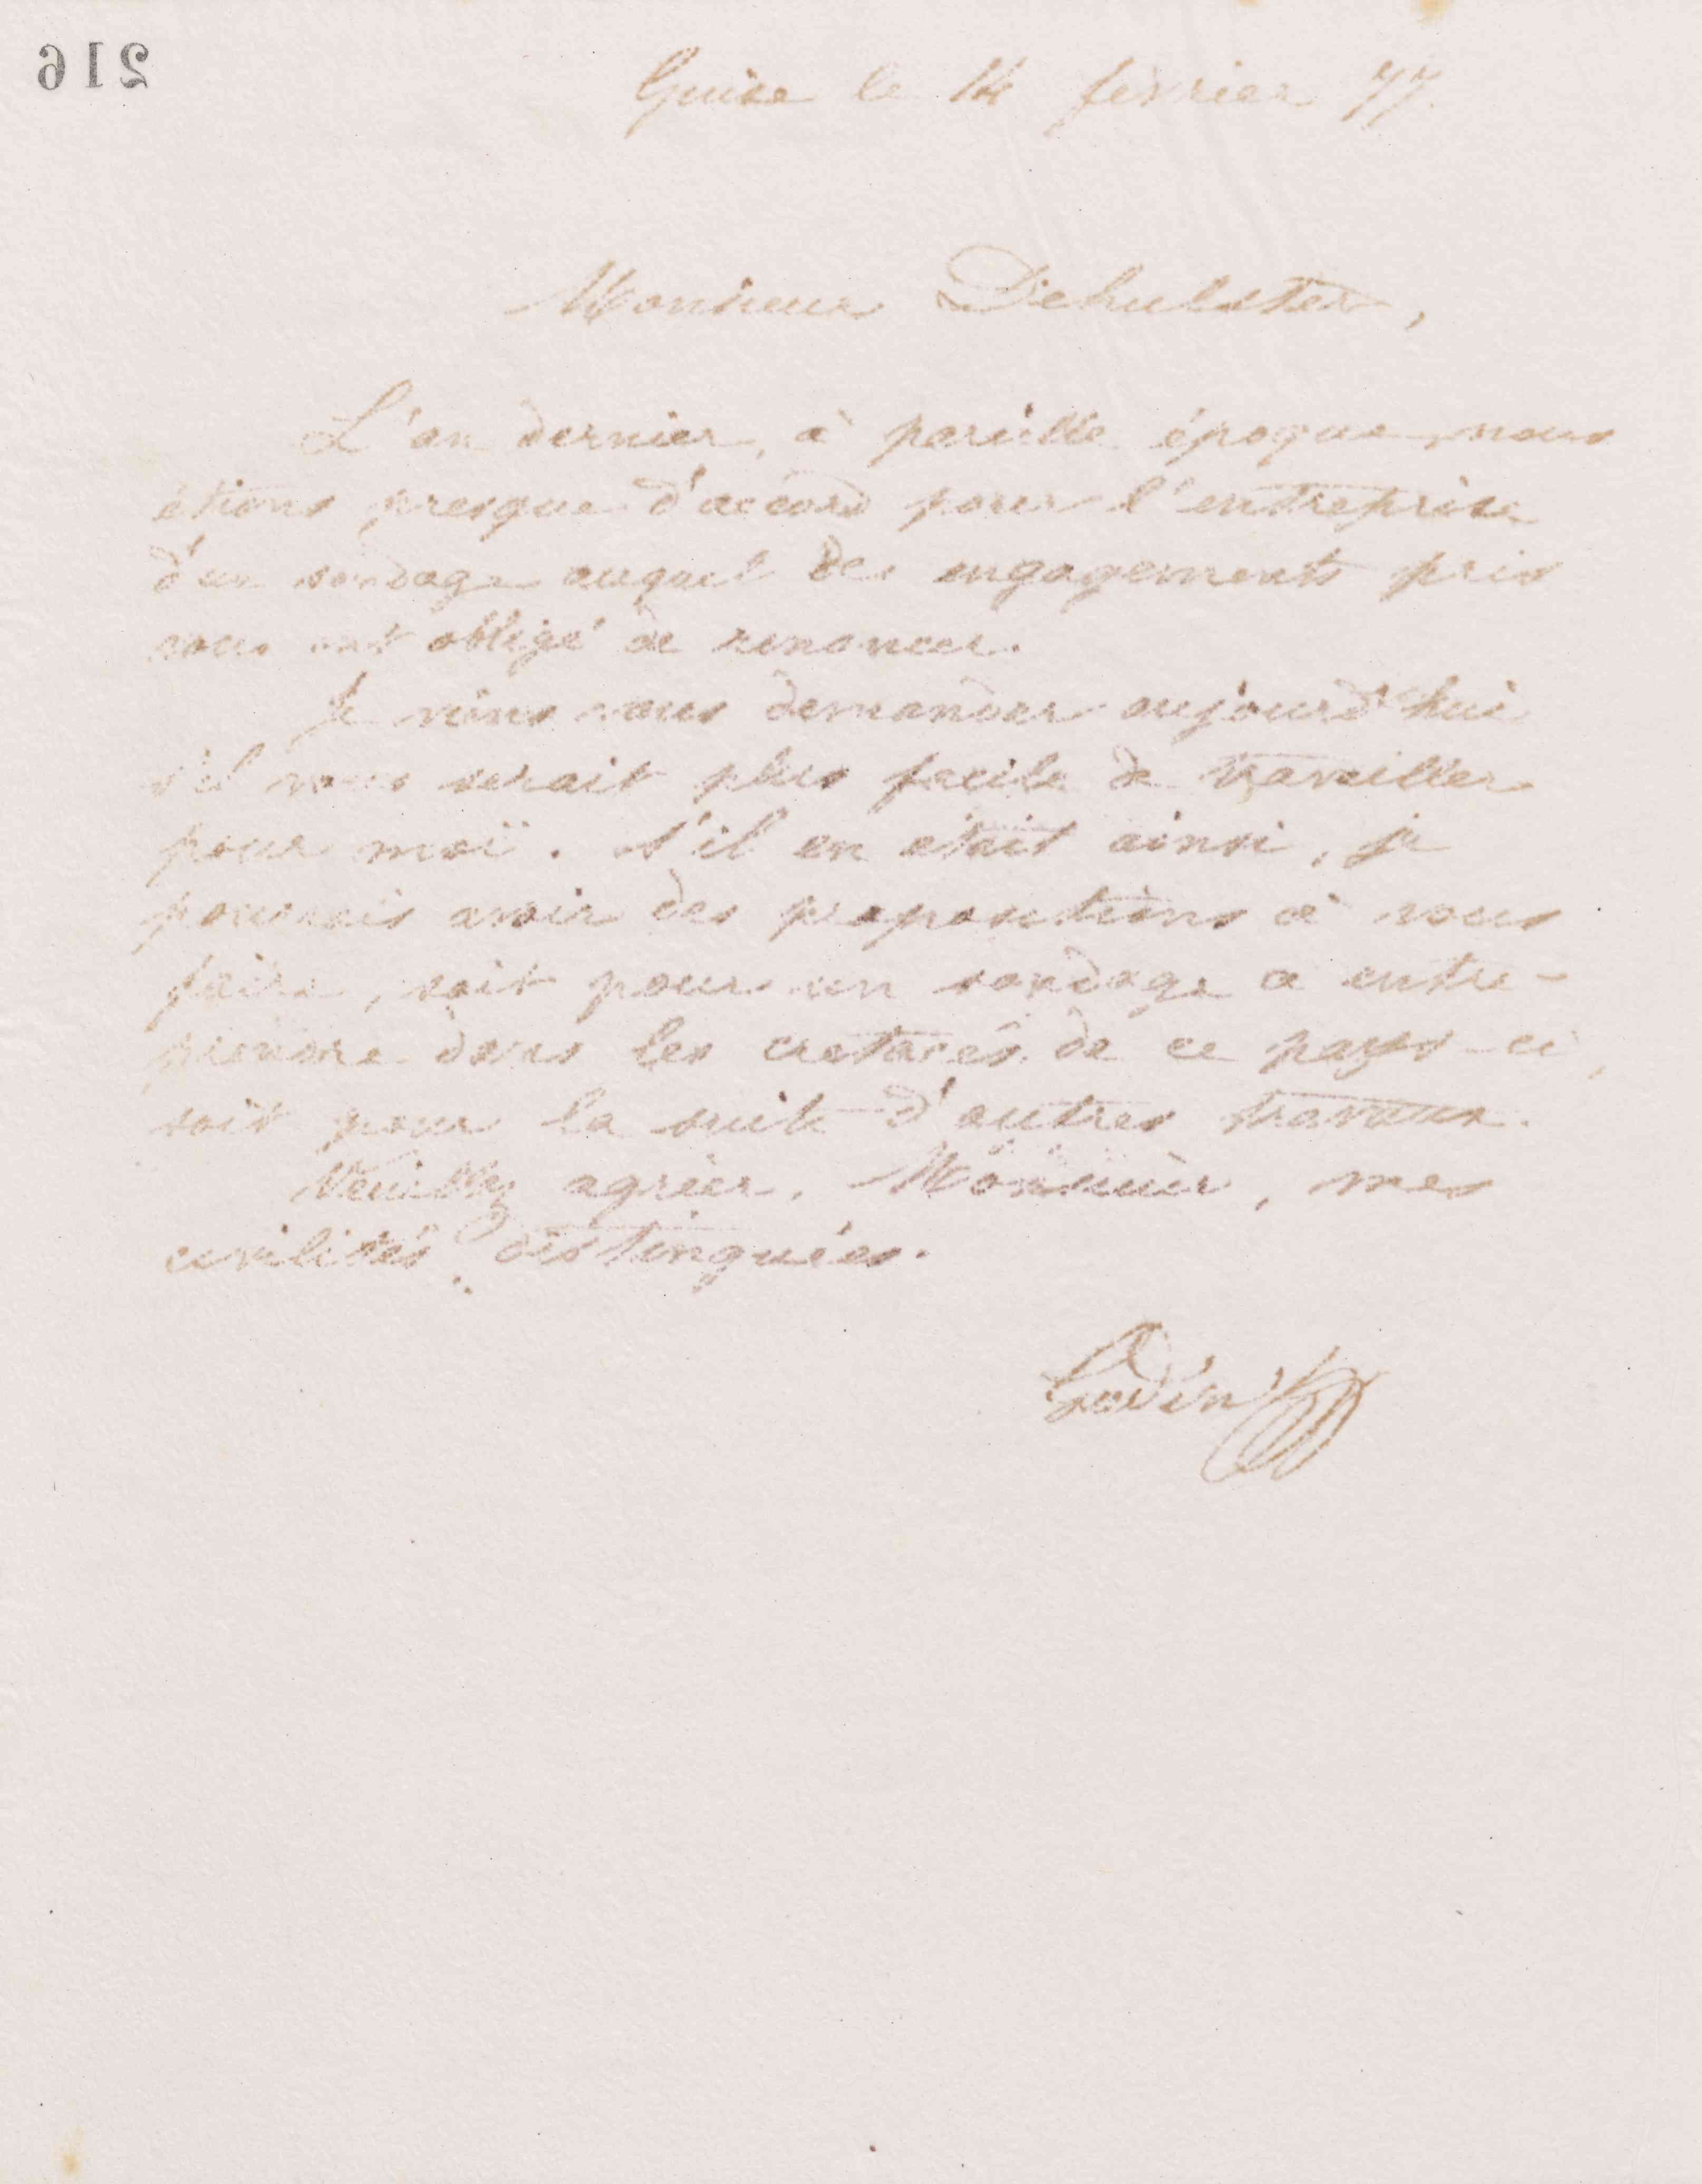 216
Guise le 14 février 77.
Monsieur Dehulster,
L'an dernier, à pareille époque, nous
étions presque d'accord pour l'entreprise
d'un sondage auquel des engagements pris
vous ont obligé de renoncer.
Je viens vous demander aujourd'hui
s'il vous serait plus facile de travailler
pour moi. S'il en était ainsi, je
pourrais avoir des propositions à vous
faire, soit pour un sondage à entre-
prendre dans les cretacés de ce pays-ci,
soit pour la suite d'autres travaux.
Veuillez agréer, Monsieur, mes
civilités distinguées.
Godin